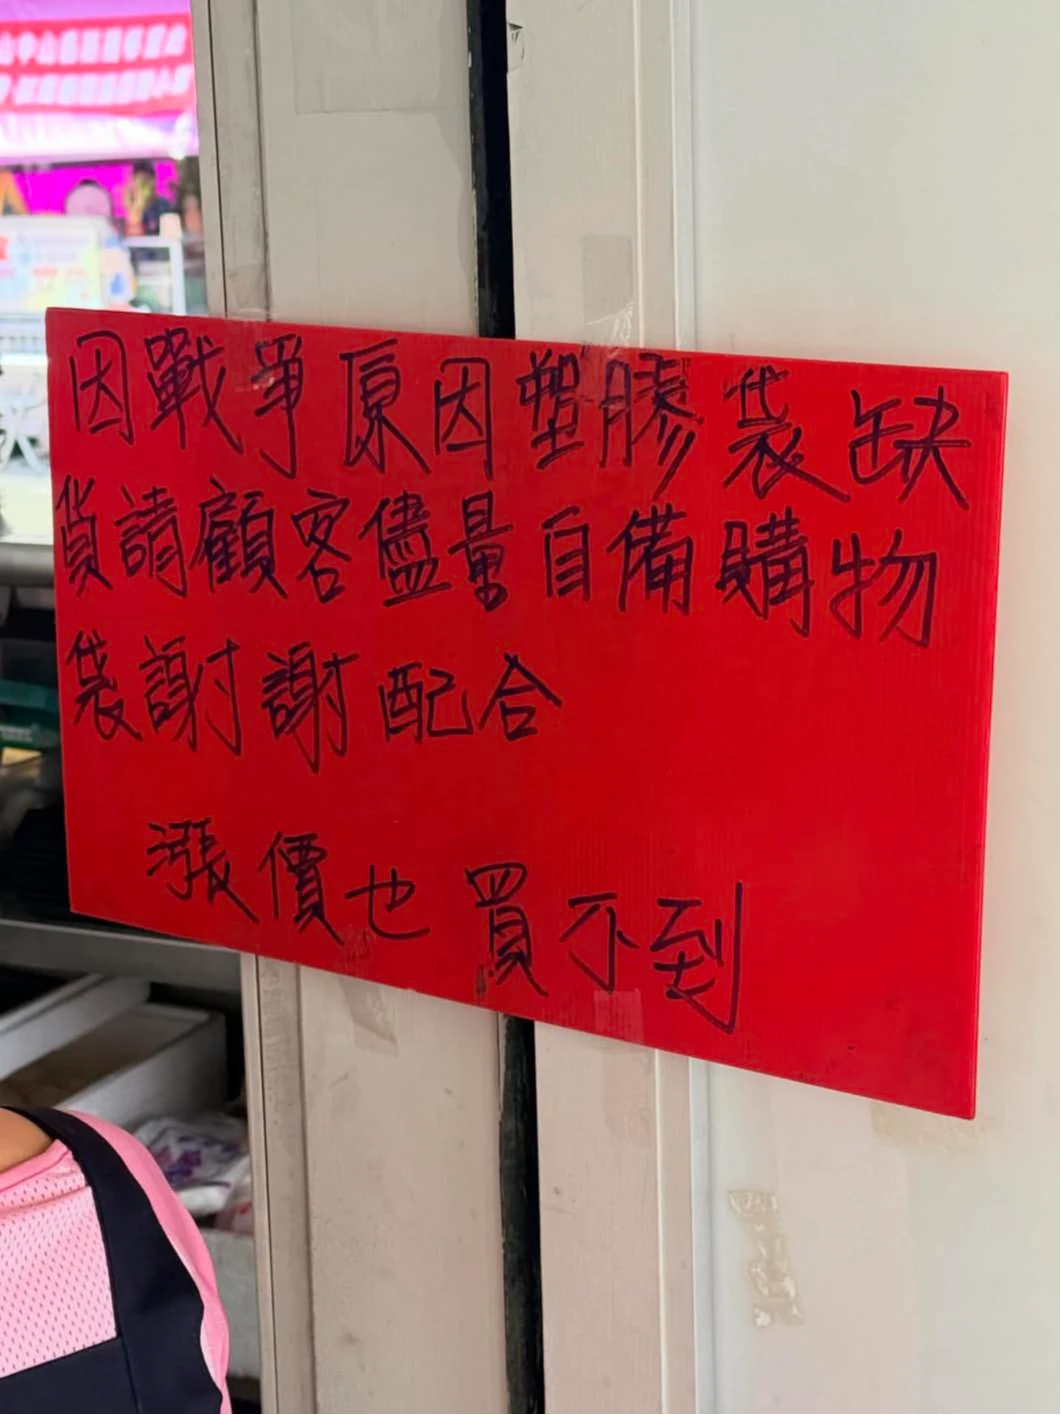 因戰爭原因塑膠袋缺
貨請顧客儘量自備購物
袋謝謝配合
漲價也買不到